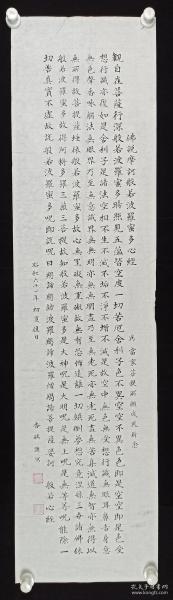 佛說摩訶般若波羅蜜多心經
觀自在菩薩行深般若波羅蜜多時照見五蘊皆空度一切苦厄舍利子色不異空空不異色色即是空空即是色受
想行識亦復如是舍利子是諸法空相不生不滅不垢不淨不增不減是故空中無色無受想行識無眼耳鼻舌身意
無色聲香味觸法無眼界乃至無意識界無無明亦無無明盡乃至無老死亦無老死盡無苦集滅道無智亦無得以
無所得故菩提薩埵依般若波羅蜜多故心無罣礙無罣礙故無有恐怖遠離一切顛倒夢想究竟涅槃三世諸佛依
般若波羅蜜多故得阿耨多羅三藐三菩提故知般若波羅蜜多是大神呪是大明呪是無上呪是無等等呪能除一
切苦真實不虛故說般若波羅蜜多呪即說呪曰揭諦揭諦波羅揭諦波羅僧揭諦菩提薩婆訶 般若心經
昭和六十一年